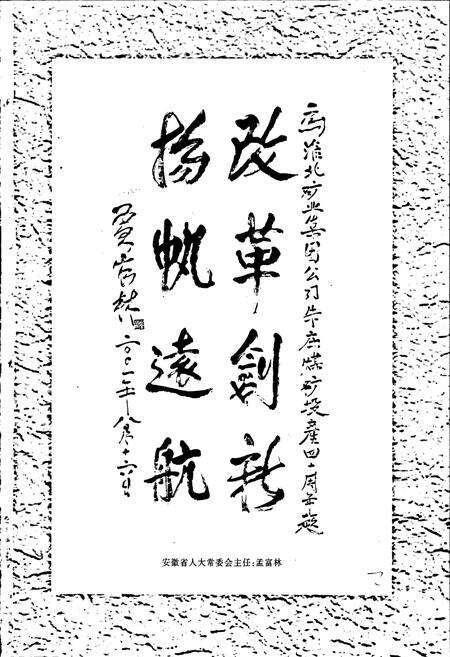 为淮北矿业集团公司朱庄煤矿投產四十周年题
改革創新
揚帆遠航
孟富林 二〇〇一年八月十六日
安徽省人大常委会主任:孟富林